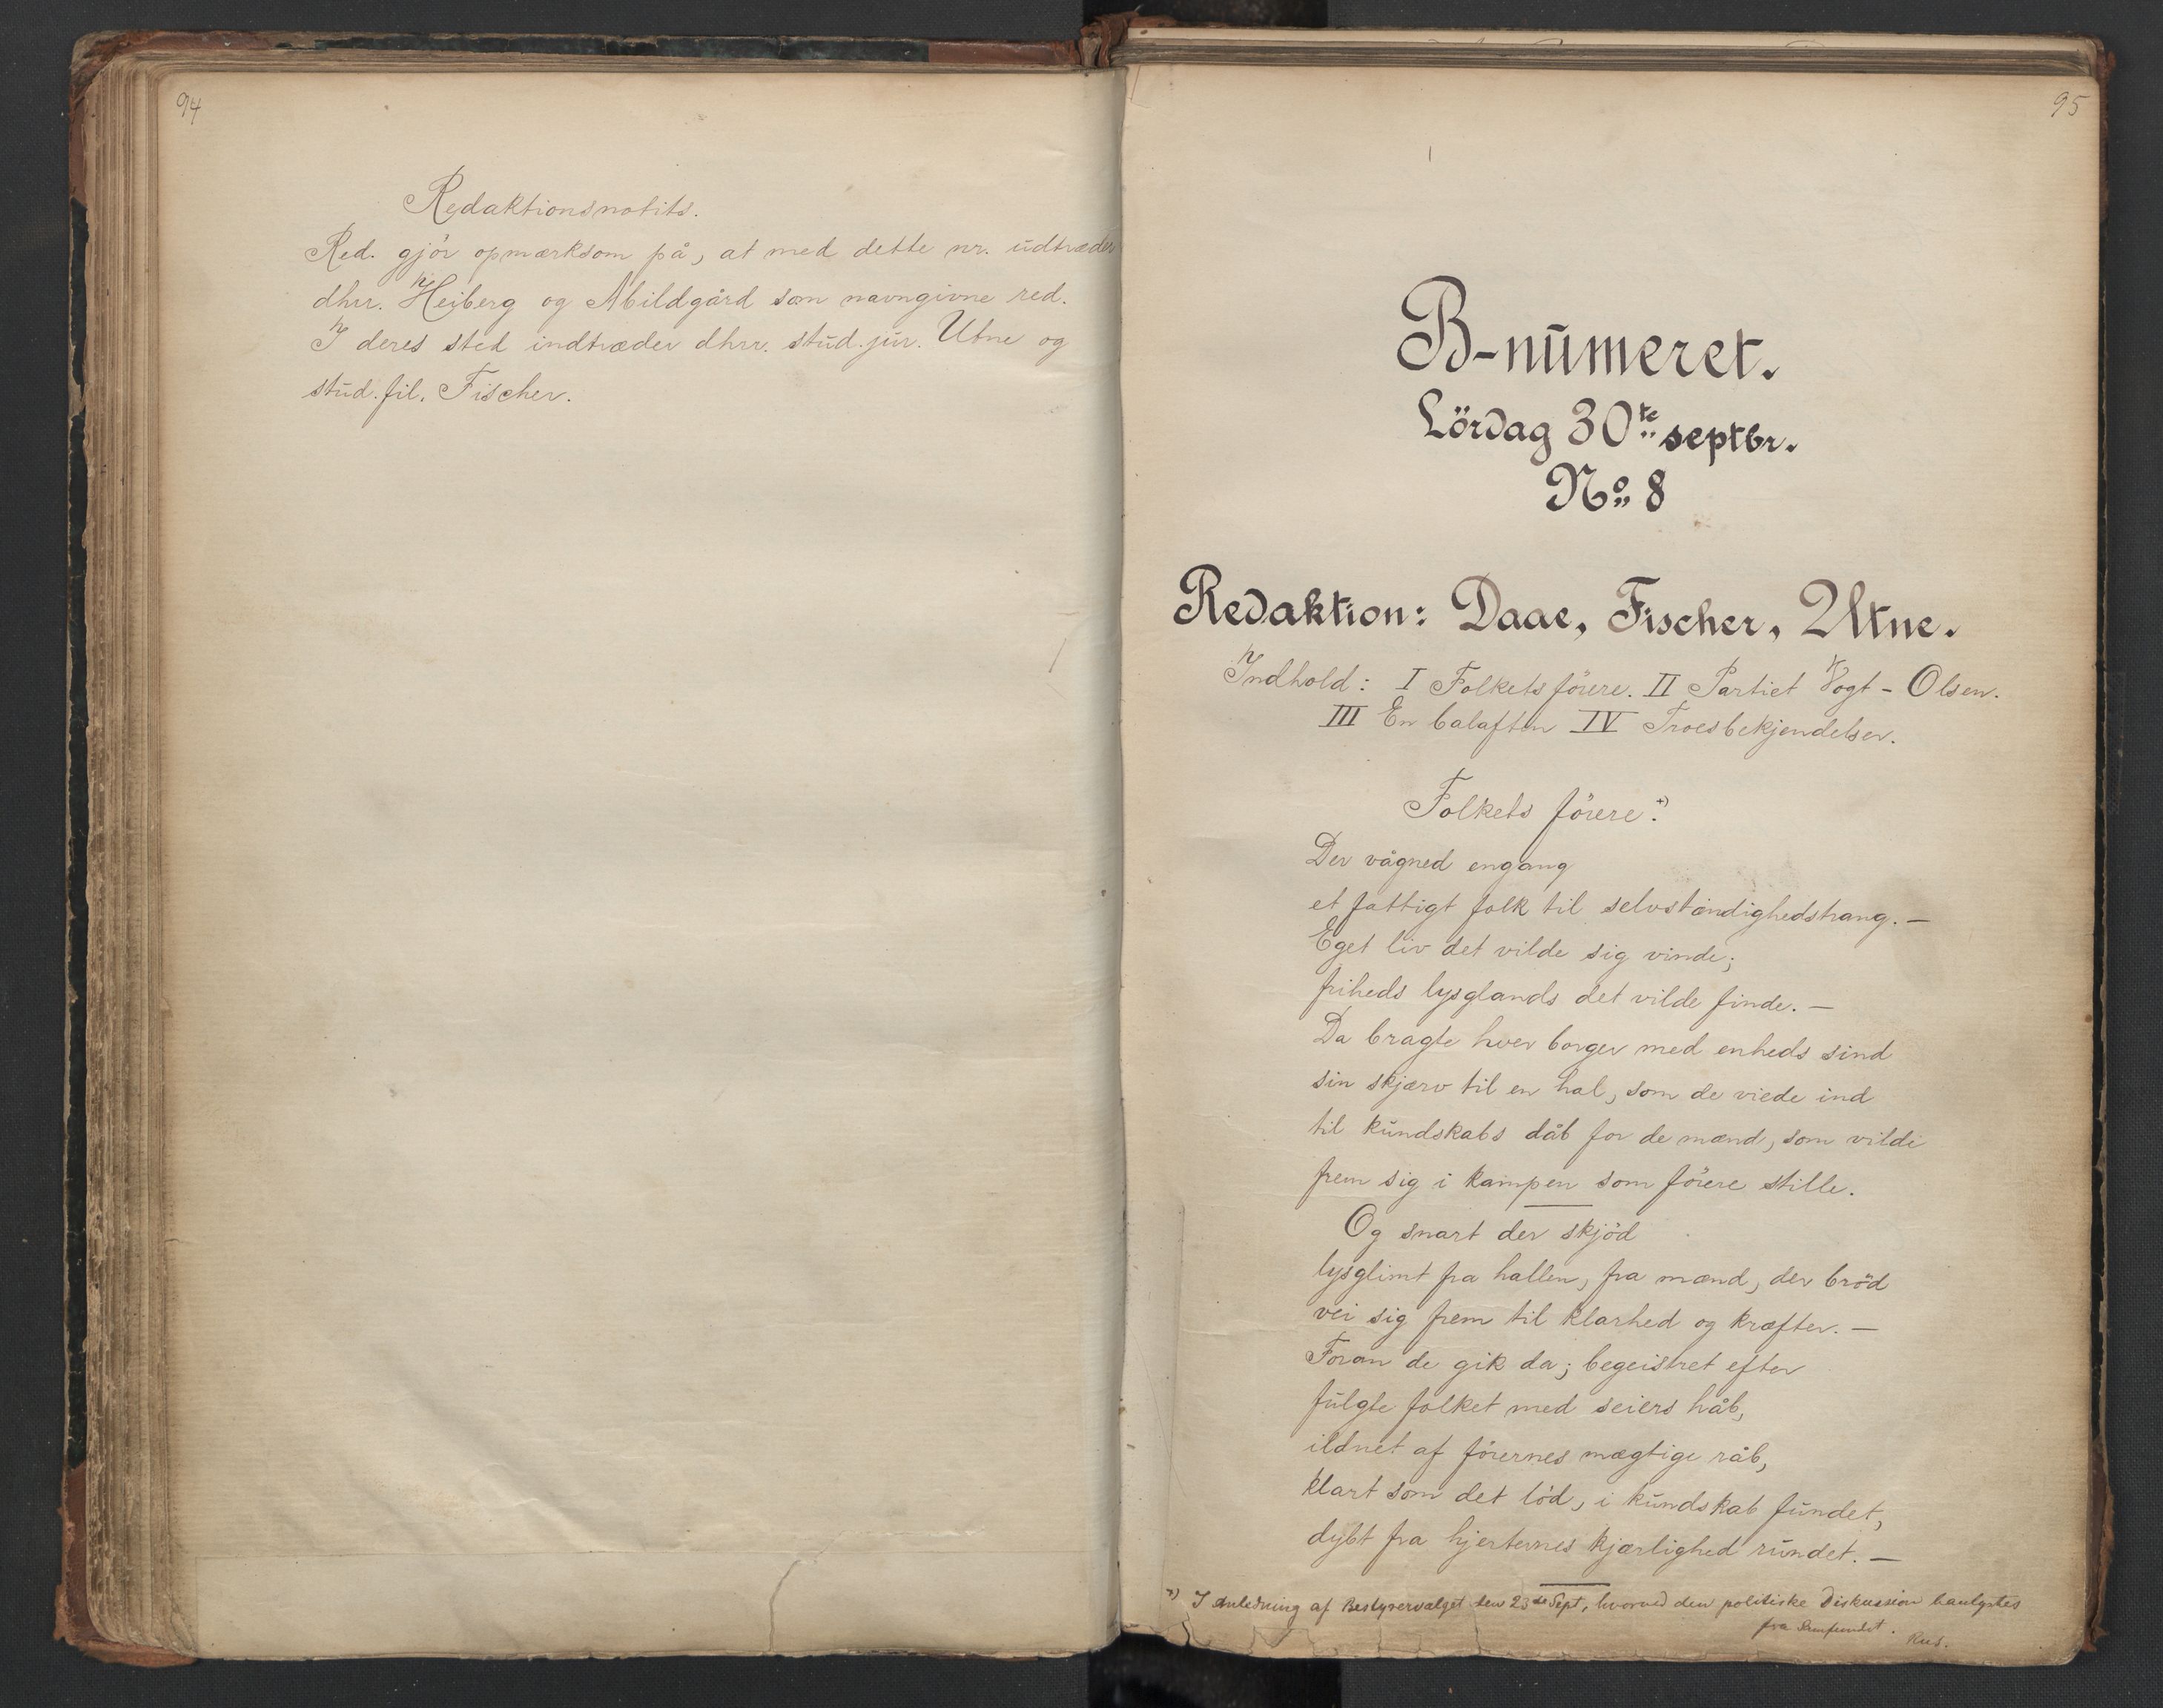 94
Redaktionsnotits.
Red. gjör opmærksom på, at med dette nr. udtræder
dhrr. Heiberg og Abildgård som navngivne red.
I deres sted indtræder dhrr. stud. jur. Utne og
stud. fil. Fischer.
95
B-numeret.
Lördag 30te septbr.
No 8
Redaktion: Daae, Fischer, Utne.
Indhold: I Folkets förere. II Partiet Vogt - Olsen.
III En balaften IV Troesbekjendelser.
Folkets förere.+)
Der vågned engang
et fattigt folk til selvstændighedstrang. —
Eget liv det vilde sig vinde;
friheds lysglands det vilde finde. —
Da bragte hver borger med enheds sind
sin skjærv til en hal, som de viede ind
til kundskabs dåb for de mænd, som vilde
frem sig i kampen som förere stille.
Og snart der skjöd
lysglimt fra hallen, fra mænd, der bröd
vei sig frem til klarhed og kræfter. —
Foran de gik da; begeistret efter
fulgte folket med seiers håb,
ildnet af förernes mægtige råb,
klart som det löd, i kundskab fundet,
dybt fra hjerternes kjærlighed rundet. —
+) I Anledning af Bestyrervalget den 23de Sept, hvorved den politiske Diskussion banlystes
fra Samfundet.
Red.